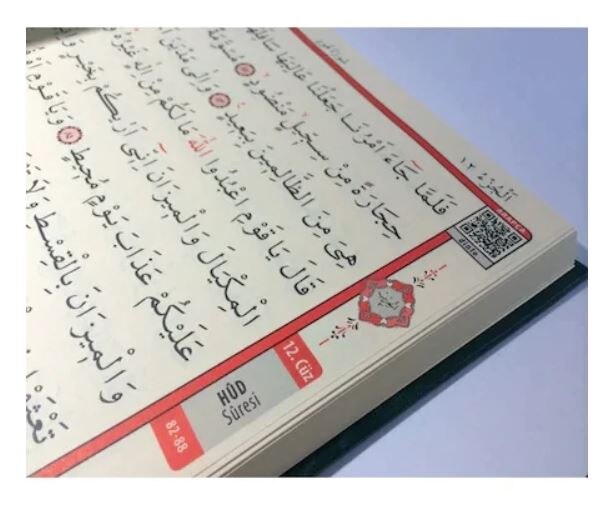 اَلْجُزْءُ ١٢
ARAPÇA
dinle
فَلَمَّا جَٓاءَ اَمْرُنَا جَعَلْنَا عَالِيَهَا سَافِلَهَا
حِجَارَةً مِنْ سِجّ۪يلٍ مَنْضُودٍ ﴿٨٢﴾ مُسَوَّمَةً
هِيَ مِنَ الظَّالِم۪ينَ بِبَع۪يدٍ ﴿٨٣﴾ وَاِلٰى مَدْيَنَ
قَالَ يَا قَوْمِ اعْبُدُوا اللّٰهَ مَا لَكُمْ مِنْ اِلٰهٍ غَيْرُهُ
الْمِكْيَالَ وَالْم۪يزَانَ اِنّ۪ٓي اَرٰيكُمْ بِخَيْرٍ
عَلَيْكُمْ عَذَابَ يَوْمٍ مُح۪يطٍ ﴿٨٤﴾ وَيَا قَوْمِ
وَالْم۪يزَانَ بِالْقِسْطِ وَلَا
12. Cüz
HÛD
Sûresi
82-88